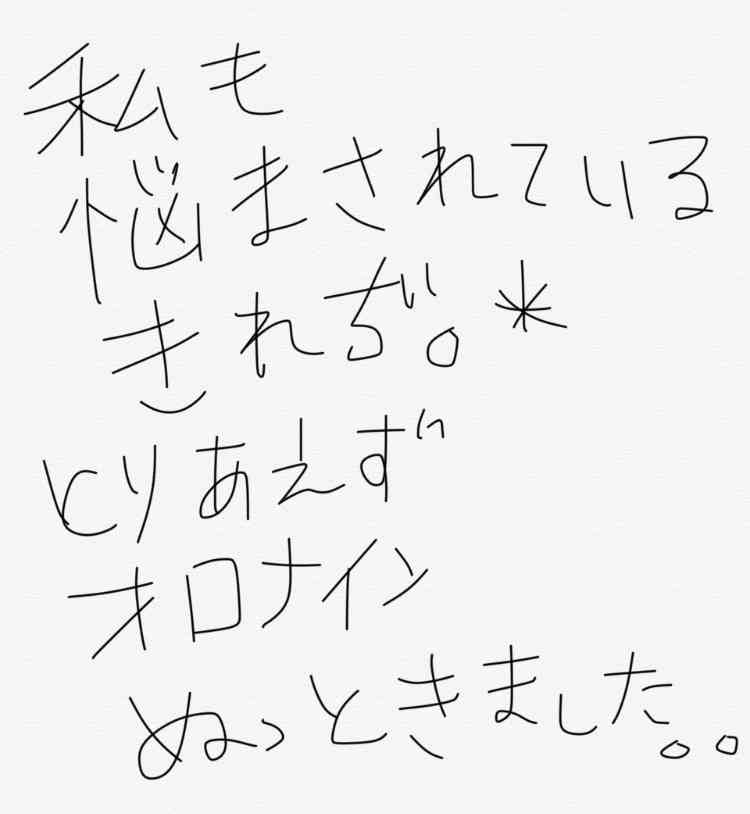 私も
悩まされている
きれぢ。*
とりあえず
オロナイン
ぬっときました。。